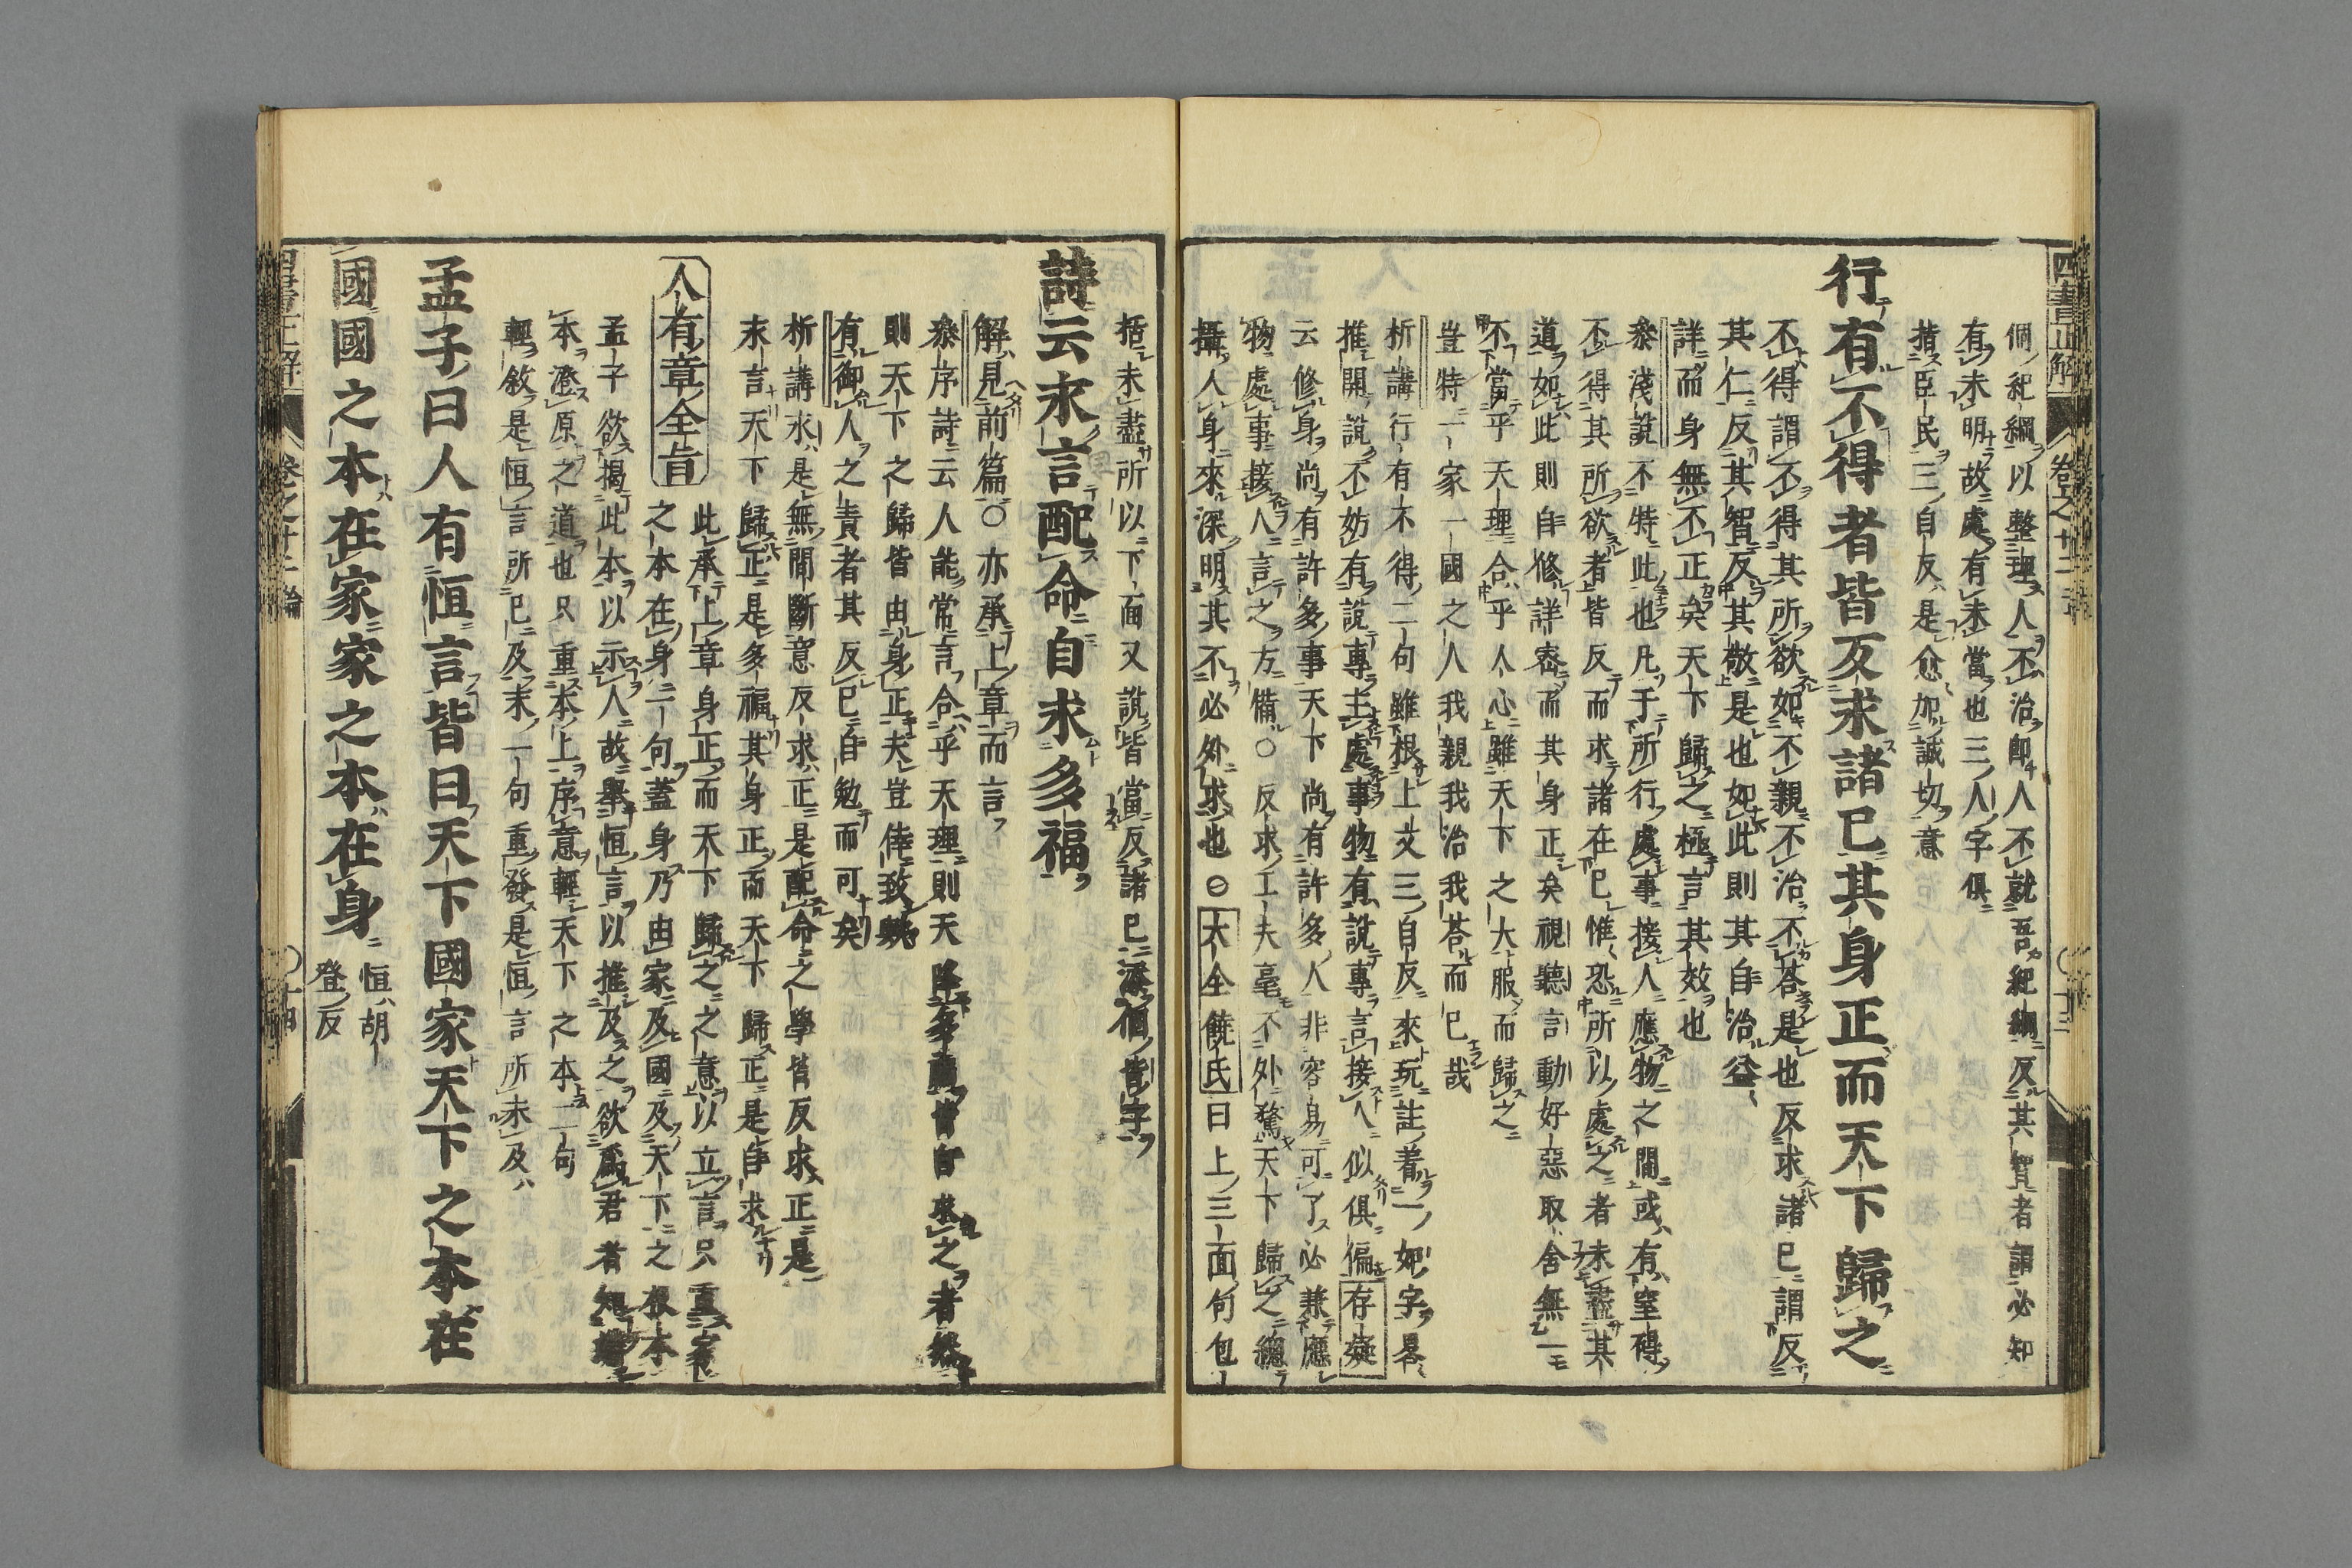 四書正解 卷之十二 十三
個紀綱以整理人不治即人不就吾紀綱反其智者謂必知
有未明故處有未當也三人字俱
指臣民三自反是愈加誠切意
行有不得者皆反求諸已其身正而天下歸之
不得謂不得其所欲如不親不治不荅是也反求諸已謂反
其仁反其智反其敬是也如此則其自治益
詳而身無不正矣天下歸之極言其效也
叅淺說不特此也凡于所行處事接人應物之間或有窒碍
不得其所欲者皆反而求諸在已惟恐所以處之者未盡其
道如此則自修詳密而其身正矣視聽言動好惡取舍無一
不當乎天理合乎人心雖天下之大服而歸之
豈特一家一國之人我親我治我荅而已哉
析講行有不得二句雖根上文三自反來玩註着一如字畧
推開說不妨有說專主處事物有說專言接人似俱偏存疑
云修身尚有許多事天下尚有許多人非容易可了必兼應
物處事接人言之方備○反求工夫毫不外騖天下歸之總
攝人身來深明其不必外求也○大全饒氏曰上三面句包
括未盡所以下面又說皆當反諸已添箇皆字
詩云永言配命自求多福
解見前篇○亦承上章而言
叅序詩云人能常言合乎天理則天降多福皆自求之者然
則天下之歸皆由身正夫豈倖致哉
有御人之責者其反已自勉而可矣
析講永是無間斷意反求正是配命之學皆反求正是
末言天下歸正是多福其身正而天下歸正是自求
人有章全旨
此承上章身正而天下歸之之意以立言只重家
之本在身二句蓋身乃由家及國及天下之根本
孟子欲揭此本以示人故舉恒言以推及之欲爲君者知
本澄原之道也只重本上序意輕天下之本二句
輕敘是恒言所已及末一句重發是恒言所未及
孟子曰人有恒言皆曰天下國家天下之本在
國國之本在家家之本在身恒胡登反
四書正解 卷之十二 十四